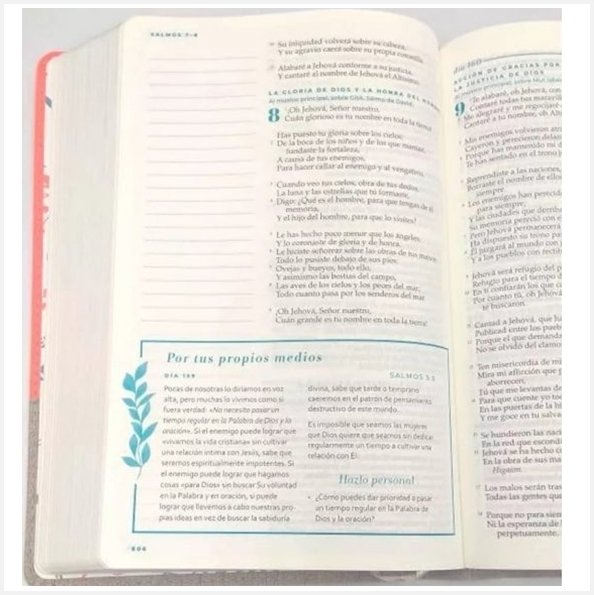 SALMOS 7-8
Su iniquidad volverá sobre su cabeza,
Y su agravio caerá sobre su propia coronilla.
Alabaré a Jehová conforme a su justicia,
Y cantaré al nombre de Jehová el Altísimo.
LA GLORIA DE DIOS Y LA HONRA DEL HOMBRE
Al músico principal; sobre Gitit. Salmo de David.
8 ¡Oh Jehová, Señor nuestro,
Cuán glorioso es tu nombre en toda la tierra!
Has puesto tu gloria sobre los cielos;
2 De la boca de los niños y de los que maman,
fundaste la fortaleza,
A causa de tus enemigos,
Para hacer callar al enemigo y al vengativo.
3 Cuando veo tus cielos, obra de tus dedos,
La luna y las estrellas que tú formaste,
4 Digo: ¿Qué es el hombre, para que tengas de él
memoria,
Y el hijo del hombre, para que lo visites?
5 Le has hecho poco menor que los ángeles,
Y lo coronaste de gloria y de honra.
6 Le hiciste señorear sobre las obras de tus manos;
Todo lo pusiste debajo de sus pies:
7 Ovejas y bueyes, todo ello,
Y asimismo las bestias del campo,
8 Las aves de los cielos y los peces del mar;
Todo cuanto pasa por los senderos del mar.
9 ¡Oh Jehová, Señor nuestro,
Cuán grande es tu nombre en toda la tierra!
Por tus propios medios
DÍA 159
SALMOS 5:3
Pocas de nosotras lo diríamos en voz
alta, pero muchas lo vivimos como si
fuera verdad: «No necesito pasar un
tiempo regular en la Palabra de Dios y la
oración». Si el enemigo puede lograr que
«vivamos la vida cristiana» sin cultivar
una relación íntima con Jesús, sabe que
seremos espiritualmente impotentes. Si
el enemigo puede lograr que hagamos
cosas «para Dios» sin buscar Su voluntad
en la Palabra y en oración, si puede
lograr que llevemos a cabo nuestras pro-
pias ideas en vez de buscar la sabiduría
divina, sabe que tarde o temprano
caeremos en el patrón de pensamiento
destructivo de este mundo.
Es imposible que seamos las mujeres
que Dios quiere que seamos sin dedicar
regularmente un tiempo a cultivar una
relación con Él.
Hazlo personal
• ¿Cómo puedes dar prioridad a pasar
un tiempo regular en la Palabra de
Dios y la oración?
604
día 160
ACCIÓN DE GRACIAS POR
LA JUSTICIA DE DIOS
Al músico principal; sobre
9 Te alabaré, oh Jehová, con
Contaré todas tus
Me alegraré y me regocijaré
Cantaré a tu nombre, oh
Mis enemigos volvieron
Cayeron y perecieron
Porque has mantenido mi
Te has sentado en el trono
Reprendiste a las naciones,
Borraste el nombre de
siempre.
Los enemigos han
para siempre;
Y las ciudades que
Su memoria pereció con
Pero Jehová permanecerá
Ha dispuesto su trono
Él juzgará al mundo con
Y a los pueblos con
Jehová será refugio del
Refugio para el tiempo
En ti confiarán los que
Por cuanto tú, oh Jehová
te buscaron.
Cantad a Jehová, que
Publicad entre los
Porque el que demanda
No se olvidó del
Ten misericordia de
Mira mi aflicción que
aborrecen,
Tú que me levantas de
Para que cuente yo
En las puertas de la
Y me goce en tu
Se hundieron las
En la red que
Jehová se ha hecho
En la obra de sus
Higaion.
Los malos serán
Todas las gentes que
Porque no para
Ni la esperanza de
perpetuamente.